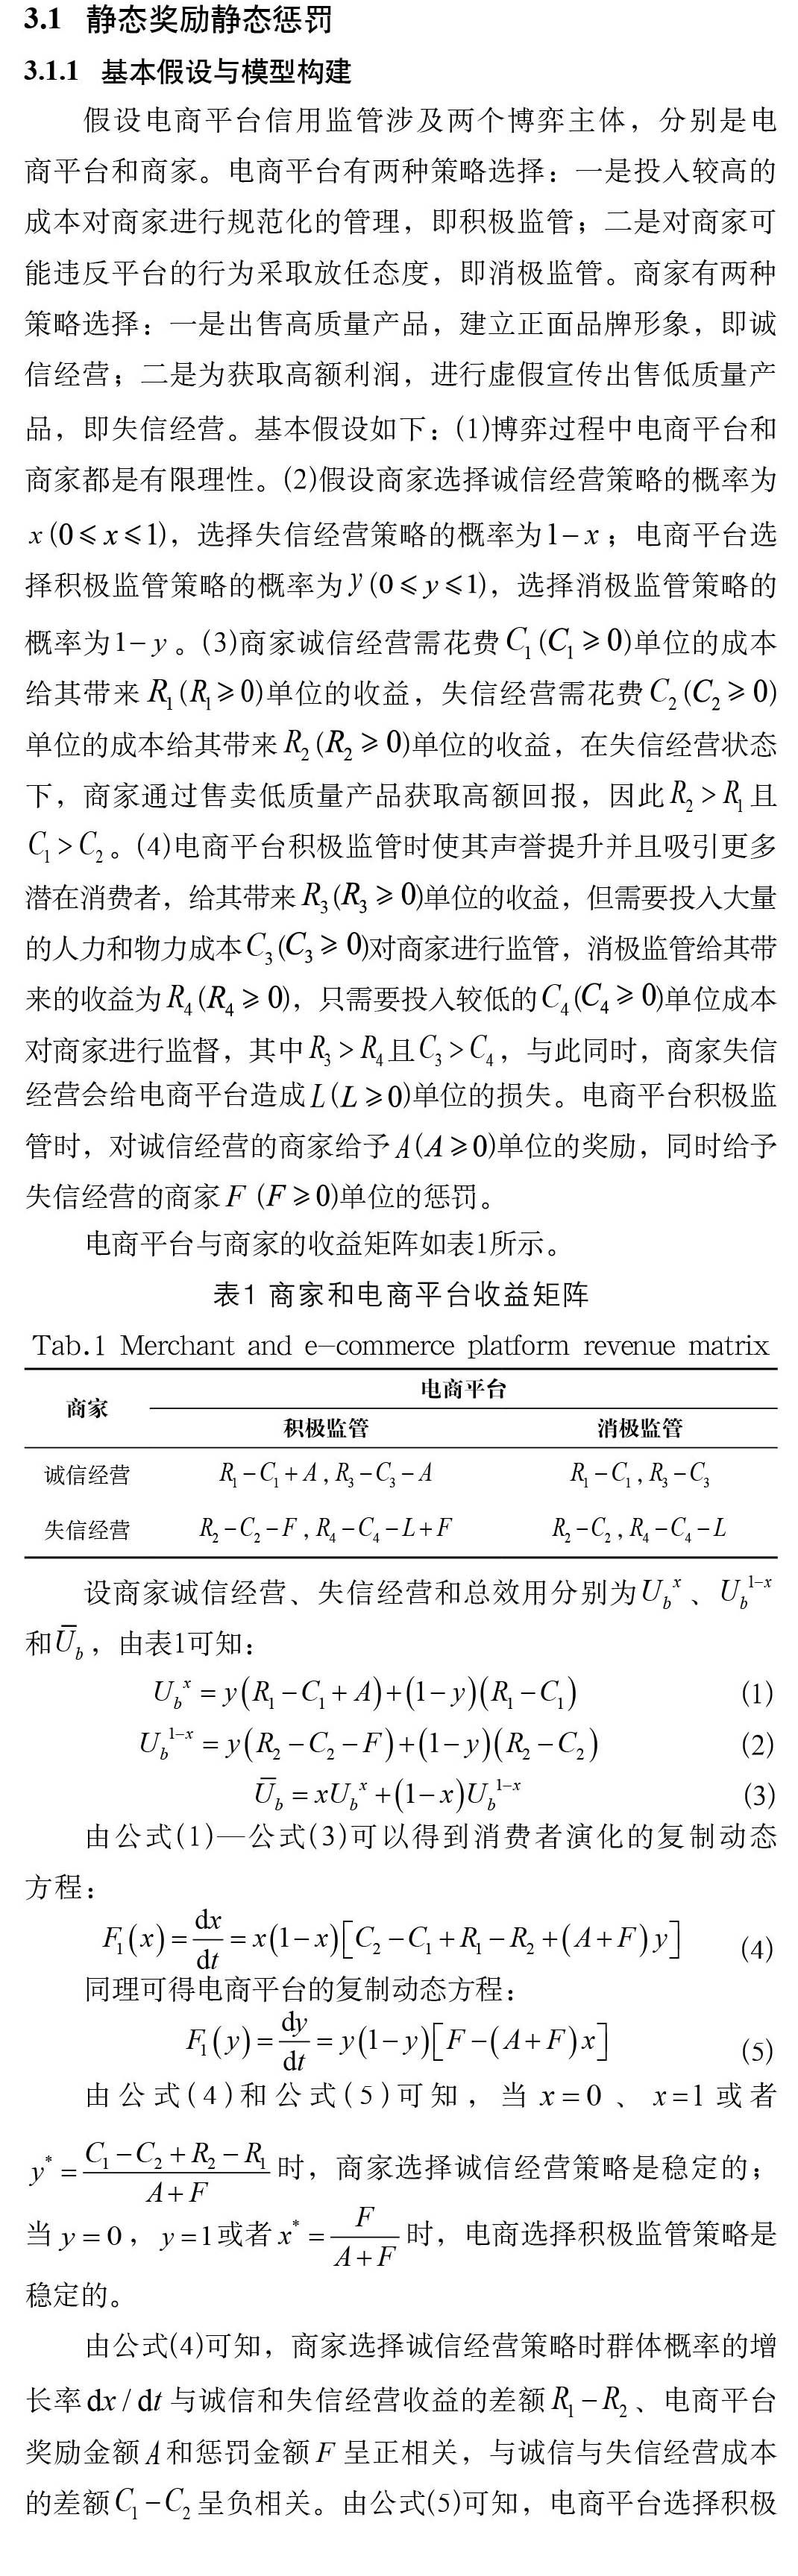 3.1 静态奖励静态惩罚
3.1.1 基本假设与模型构建
假设电商平台信用监管涉及两个博弈主体，分别是电
商平台和商家。电商平台有两种策略选择：一是投入较高的
成本对商家进行规范化的管理，即积极监管；二是对商家可
能违反平台的行为采取放任态度，即消极监管。商家有两种
策略选择：一是出售高质量产品，建立正面品牌形象，即诚
信经营；二是为获取高额利润，进行虚假宣传出售低质量产
品，即失信经营。基本假设如下：(1)博弈过程中电商平台和
商家都是有限理性。(2)假设商家选择诚信经营策略的概率为
x(0≤x≤1)，选择失信经营策略的概率为1−x；电商平台选
择积极监管策略的概率为y(0≤y≤1)，选择消极监管策略的
概率为1−y。(3)商家诚信经营需花费C₁(C₁≥0)单位的成本
给其带来R₁(R₁≥0)单位的收益，失信经营需花费C₂(C₂≥0)
单位的成本给其带来R₂(R₂≥0)单位的收益，在失信经营状态
下，商家通过售卖低质量产品获取高额回报，因此R₂>R₁且
C₁>C₂。(4)电商平台积极监管时使其声誉提升并且吸引更多
潜在消费者，给其带来R₃(R₃≥0)单位的收益，但需要投入大量
的人力和物力成本C₃(C₃≥0)对商家进行监管，消极监管给其带
来的收益为R₄(R₄≥0)，只需要投入较低的C₄(C₄≥0)单位成本
对商家进行监督，其中R₃>R₄且C₃>C₄，与此同时，商家失信
经营会给电商平台造成L(L≥0)单位的损失。电商平台积极监
管时，对诚信经营的商家给予A(A≥0)单位的奖励，同时给予
失信经营的商家F (F≥0)单位的惩罚。
电商平台与商家的收益矩阵如表1所示。
表1 商家和电商平台收益矩阵
Tab.1 Merchant and e−commerce platform revenue matrix
商家 电商平台
积极监管 消极监管
诚信经营 R₁−C₁+A, R₃−C₃−A R₁−C₁, R₃−C₃
失信经营 R₂−C₂−F, R₄−C₄−L+F R₂−C₂, R₄−C₄−L
设商家诚信经营、失信经营和总效用分别为U_b^x、U_b^{1−x}
和Ū_b，由表1可知：
U_b^x = y(R₁−C₁+A)+(1−y)(R₁−C₁) (1)
U_b^{1−x} = y(R₂−C₂−F)+(1−y)(R₂−C₂) (2)
Ū_b = xU_b^x+(1−x)U_b^{1−x} (3)
由公式(1)—公式(3)可以得到消费者演化的复制动态
方程：
F₁(x)=dx/dt=x(1−x)[C₂−C₁+R₁−R₂+(A+F)y] (4)
同理可得电商平台的复制动态方程：
F₁(y)=dy/dt=y(1−y)[F−(A+F)x] (5)
由公式(4)和公式(5)可知，当x=0、x=1或者
y*=(C₁−C₂+R₂−R₁)/(A+F)时，商家选择诚信经营策略是稳定的；
当y=0，y=1或者x*=F/(A+F)时，电商选择积极监管策略是
稳定的。
由公式(4)可知，商家选择诚信经营策略时群体概率的增
长率dx/dt与诚信和失信经营收益的差额R₁−R₂、电商平台
奖励金额A和惩罚金额F呈正相关，与诚信与失信经营成本
的差额C₁−C₂呈负相关。由公式(5)可知，电商平台选择积极